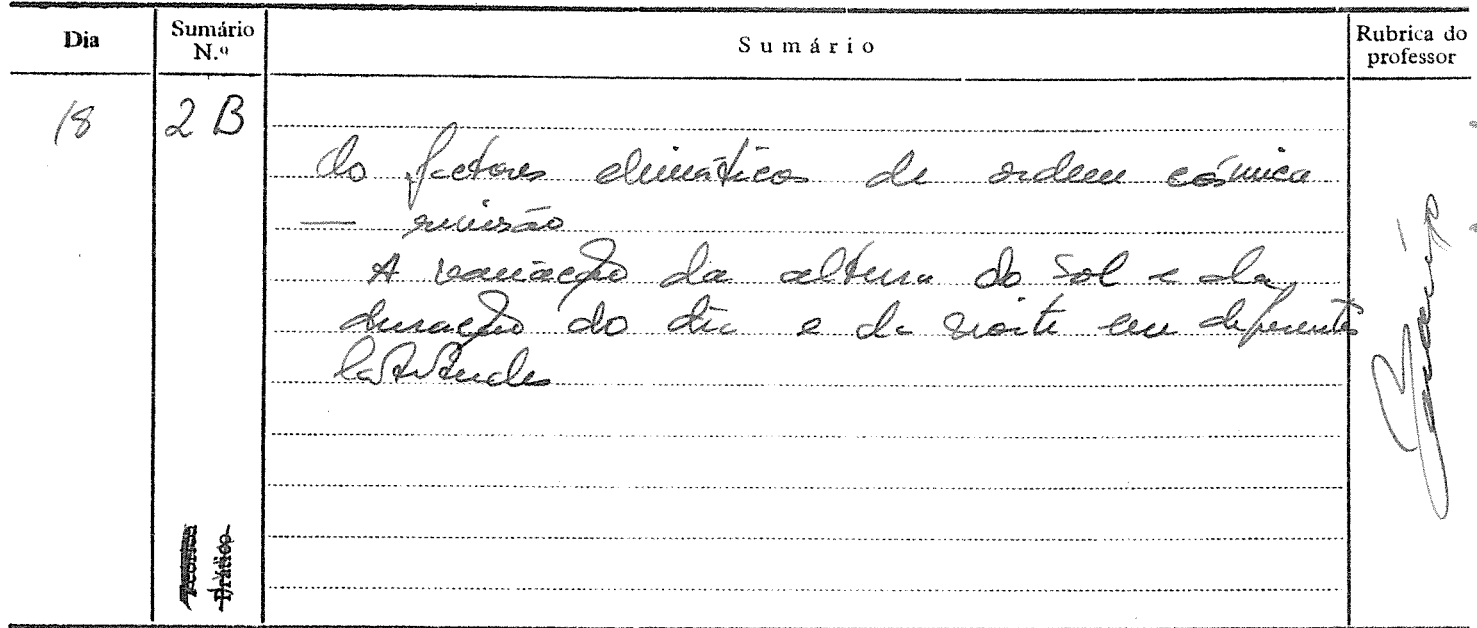 Dia
Sumário N.º
Sumário
Rubrica do professor
18
2 B
Os factores climáticos de ordem cósmica
— revisão
A variação da altura do Sol e da
duração do dia e da noite em diferentes
latitudes
Teórica
Prático